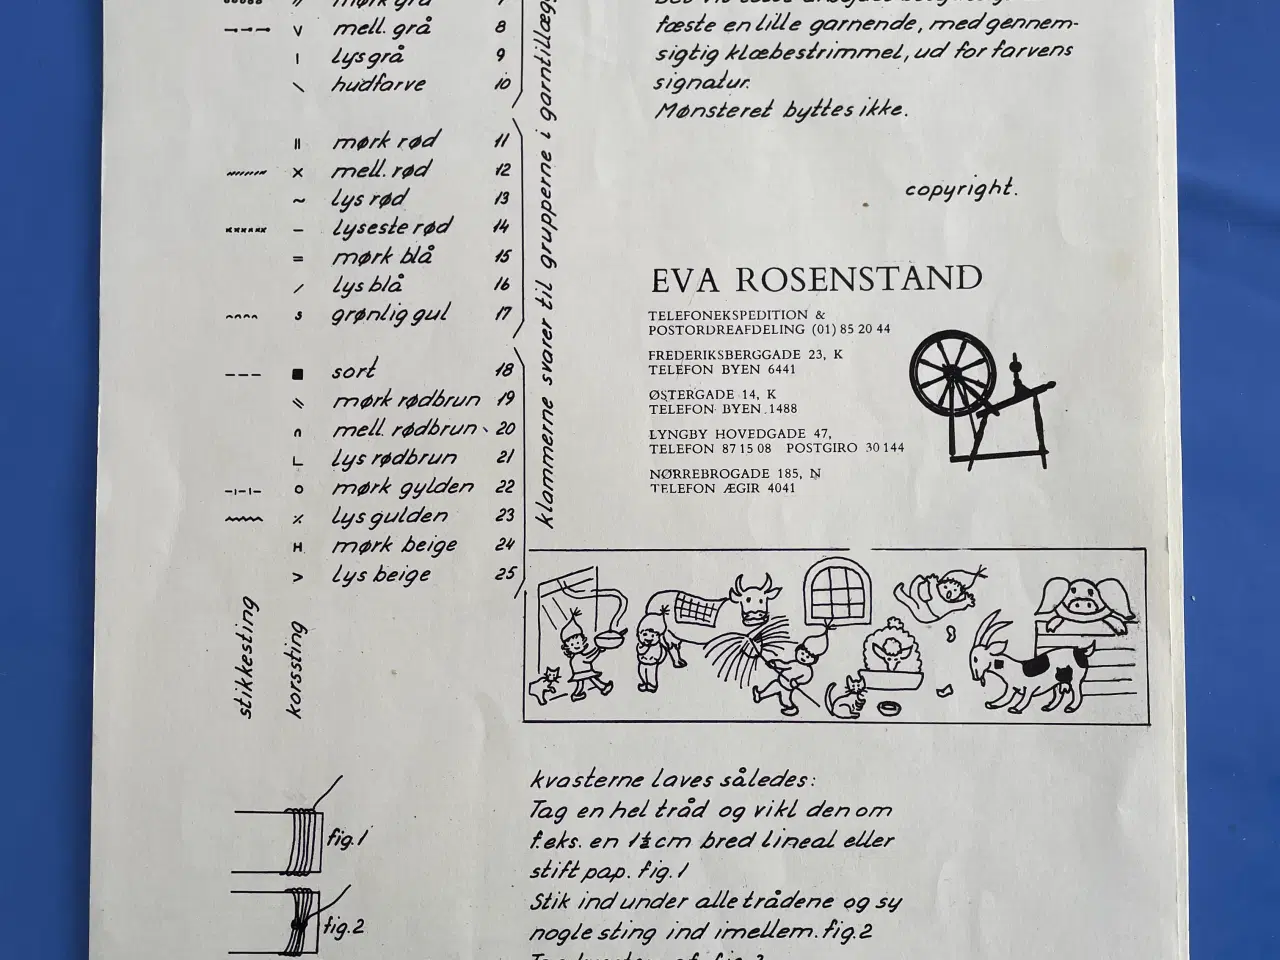 mørk grå 7
v mell. grå 8
ı lysgrå 9
\ hudfarve 10
ıı mørk rød 11
x mell. rød 12
~ lys rød 13
- lyseste rød 14
= mørk blå 15
/ lys blå 16
s grønlig gul 17
■ sort 18
mørk rødbrun 19
∩ mell. rødbrun 20
L lys rødbrun 21
o mørk gylden 22
⁒ lys gulden 23
H mørk beige 24
> lys beige 25
stikkesting
korssting
klammerne svarer til grupperne i garntillæg
fæste en lille garnende, med gennem-
sigtig klæbestrimmel, ud for farvens
signatur.
Mønsteret byttes ikke.
copyright.
EVA ROSENSTAND
TELEFONEKSPEDITION &
POSTORDREAFDELING (01) 85 20 44
FREDERIKSBERGGADE 23, K
TELEFON BYEN 6441
ØSTERGADE 14, K
TELEFON BYEN 1488
LYNGBY HOVEDGADE 47,
TELEFON 87 15 08 POSTGIRO 30 144
NØRREBROGADE 185, N
TELEFON ÆGIR 4041
fig. 1
fig. 2
kvasterne laves således:
Tag en hel tråd og vikl den om
f.eks. en 1½ cm bred lineal eller
stift pap. fig. 1
Stik ind under alle trådene og sy
nogle sting ind imellem. fig. 2